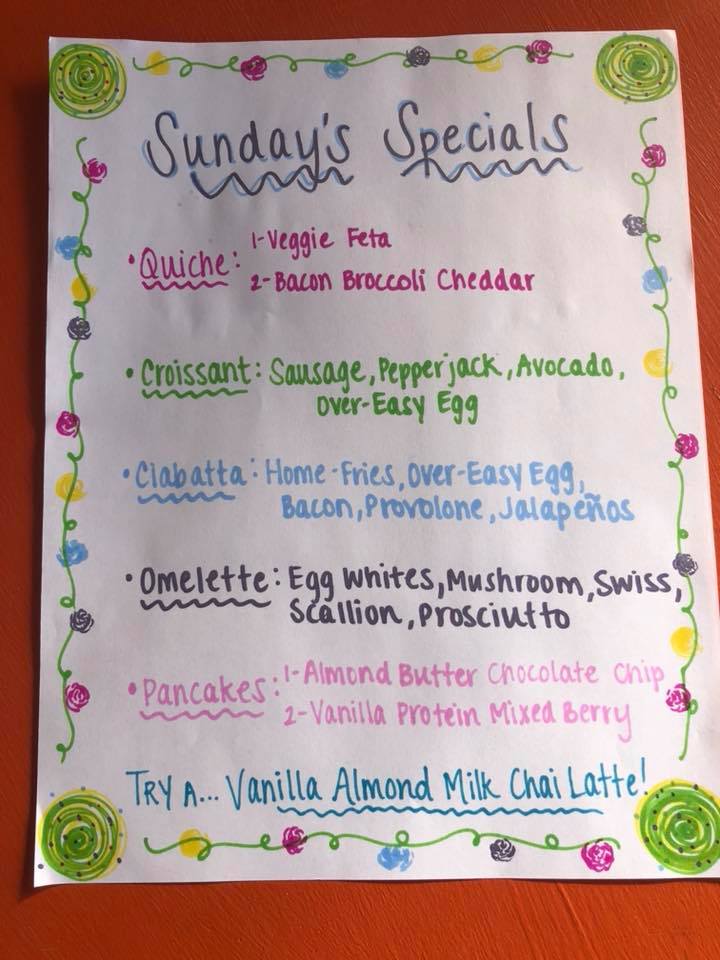 Sunday's Specials
• Quiche: 1-Veggie Feta
2-Bacon Broccoli Cheddar
• Croissant: Sausage, Pepperjack, Avocado,
Over-Easy Egg
• Ciabatta: Home-Fries, Over-Easy Egg,
Bacon, Provolone, Jalapeños
• Omelette: Egg Whites, Mushroom, Swiss,
Scallion, Prosciutto
• Pancakes: 1-Almond Butter Chocolate Chip
2-Vanilla Protein Mixed Berry
TRY A... Vanilla Almond Milk Chai Latte!